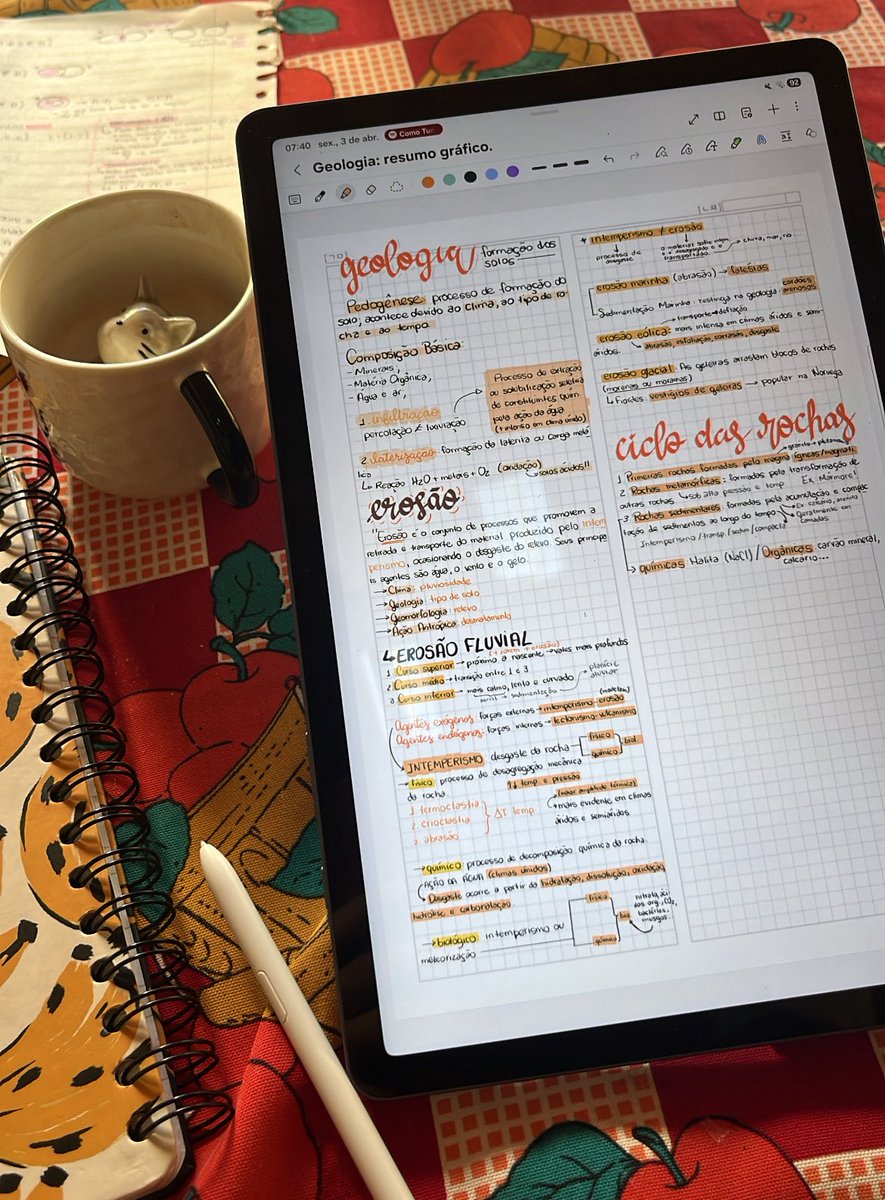 07:40 sex., 3 de abr. Como Tu
92
Geologia: resumo gráfico.
geologia formação dos
solos
Pedogênese: processo de formação do
solo; acontece devido ao clima, ao tipo de ro-
cha e ao tempo.
Composição Básica:
- Minerais;
- Matéria Orgânica;
- Água e ar;
1. infiltração
percolação ≠ lixiviação
Processo de extração
ou solubilização seletiva
de constituintes quím.
pela ação da água.
(+ intenso em clima úmido)
2. laterização: formação da laterita ou canga
↳ Reação H2O + metais + O2 (oxidação)
→ solos ácidos!!
erosão
"Erosão é o conjunto de processos que promovem a
retirada e transporte do material produzido pelo intem
perismo, ocasionando o desgaste do relevo. Seus principa
is agentes são água, o vento e o gelo.
→ Clima: pluviosidade
→ Geologia: tipo de solo
→ Geomorfologia: relevo
→ Ação Antrópica: desmatamento
↳ EROSÃO FLUVIAL
1 Curso superior → próximo a nascente → vales mais profundos
2 Curso médio → transição entre 1 e 3
3 Curso inferior → mais calmo, lento e curvado
sedimentação
planície
aluvial
Agentes exógenos: forças externas → intemperismo, erosão
(modelam)
Agentes endógenos: forças internas → tectonismo, vulcanismo
INTEMPERISMO desgaste da rocha
físico
químico
biol.
→ físico processo de desagregação mecânica
da rocha.
↑↓ temp. e pressão
1 termoclastia
2 crioclastia
3 abrasão
ΔT temp.
(maior amplitude térmica)
+ mais evidente em climas
áridos e semiáridos
→ químico: processo de decomposição química da rocha.
AÇÃO DA ÁGUA (climas úmidos)
Desgaste ocorre a partir da hidratação, dissolução, oxidação,
hidrólise e carbonatação
→ biológico intemperismo ou
meteorização
físico
químico
bio
bactérias,
musgos.
* intemperismo / erosão
processo de
desgaste
o material sofre intem.
e é desagregado e
transportado.
→ chuva, mar, rio...
erosão marinha (abrasão) → falésias
Sedimentação Marinha: restinga na geologia cordões
arenosos
→ transporte → deflação
erosão eólica: mais intensa em climas áridos e semi-
áridos.
↳ abrasão, esfoliação, corrasão, desgaste
erosão glacial: As geleiras arrastam blocos de rochas
(morenas ou morainas)
↳ Fiordes: vestígios de geleiras → popular na Noruega
ciclo das rochas
1 Primeiras rochas formadas pelo magma ígneas/magmáti.
2 Rochas metamórficas: formadas pela transformação de
outras rochas ↳ sob alta pressão e temp Ex. Mármore!
3 Rochas sedimentares: formadas pela acumulação e compac
tação de sedimentos ao longo do tempo
Geralmente em
camadas
Intemperismo/transp./sedim/compacta
→ químicas: Halita (NaCl) / Orgânicas: carvão mineral,
calcário...